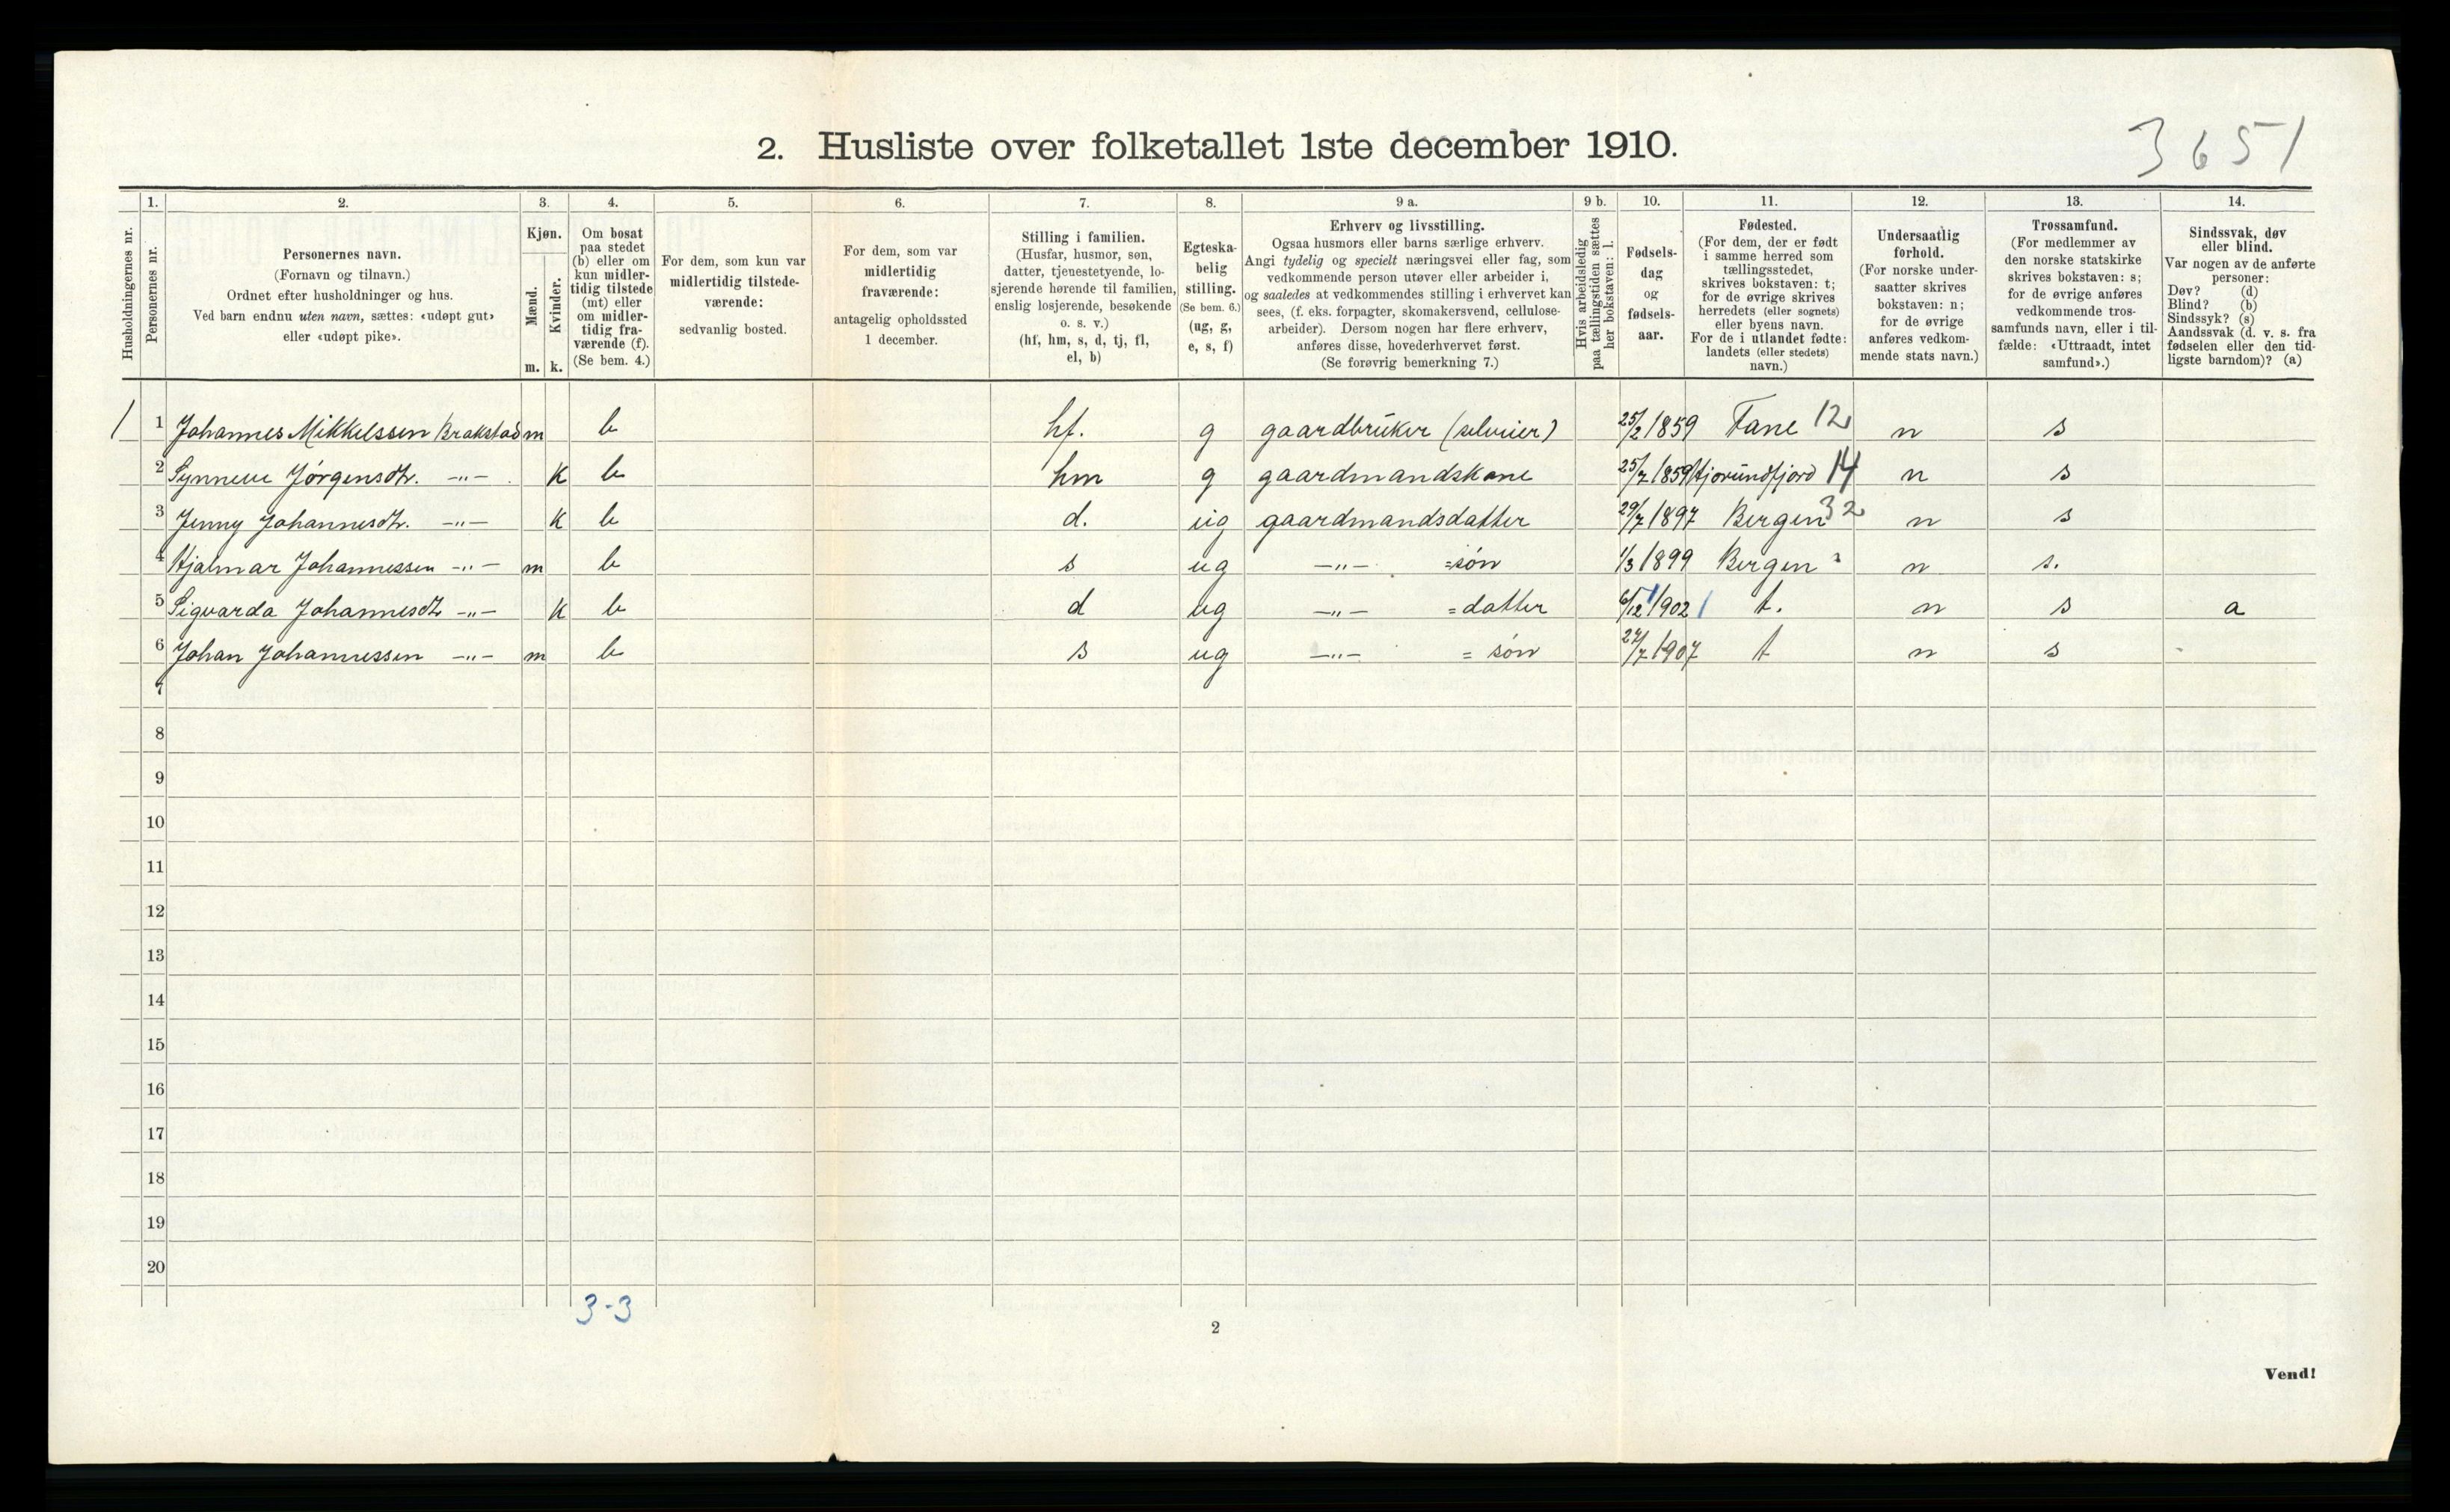 3651
2. Husliste over folketallet 1ste december 1910.
1. 2. 3. 4. 5. 6. 7. 8. 9 a. 9 b. 10. 11. 12. 13. 14.
Husholdningernes nr.
Personernes nr.
Personernes navn.
(Fornavn og tilnavn.)
Ordnet efter husholdninger og hus.
Ved barn endnu uten navn, sættes: «udøpt gut»
eller «udøpt pike».
Kjøn.
Mænd.
Kvinder.
m. k.
Om bosat
paa stedet
(b) eller om
kun midler-
tidig tilstede
(mt) eller
om midler-
tidig fra-
værende (f).
(Se bem. 4.)
For dem, som kun var
midlertidig tilstede-
værende:
sedvanlig bosted.
For dem, som var
midlertidig
fraværende:
antagelig opholdssted
1 december.
Stilling i familien.
(Husfar, husmor, søn,
datter, tjenestetyende, lo-
sjerende hørende til familien,
enslig losjerende, besøkende
o. s. v.)
(hf, hm, s, d, tj, fl,
el, b)
Egteska-
belig
stilling.
(Se bem. 6.)
(ug, g,
e, s, f)
Erhverv og livsstilling.
Ogsaa husmors eller barns særlige erhverv.
Angi tydelig og specielt næringsvei eller fag, som
vedkommende person utøver eller arbeider i,
og saaledes at vedkommendes stilling i erhvervet kan
sees, (f. eks. forpagter, skomakersvend, cellulose-
arbeider). Dersom nogen har flere erhverv,
anføres disse, hovederhvervet først.
(Se forøvrig bemerkning 7.)
Hvis arbeidsledig
paa tællingstiden sættes
her bokstaven: l.
Fødsels-
dag
og
fødsels-
aar.
Fødested.
(For dem, der er født
i samme herred som
tællingsstedet,
skrives bokstaven: t;
for de øvrige skrives
herredets (eller sognets)
eller byens navn.
For de i utlandet fødte:
landets (eller stedets)
navn.)
Undersaatlig
forhold.
(For norske under-
saatter skrives
bokstaven: n;
for de øvrige
anføres vedkom-
mende stats navn.)
Trossamfund.
(For medlemmer av
den norske statskirke
skrives bokstaven: s;
for de øvrige anføres
vedkommende tros-
samfunds navn, eller i til-
fælde: «Uttraadt, intet
samfund».)
Sindssvak, døv
eller blind.
Var nogen av de anførte
personer:
Døv? (d)
Blind? (b)
Sindssyk? (s)
Aandssvak (d. v. s. fra
fødselen eller den tid-
ligste barndom)? (a)
1 1 Johannes Mikkelssen Brakstad m b hf. g gaardbruker (selveier) 25/2 1859 Fane 12 n s
2 Synneve Jørgensdtr. -"- k b hm g gaardmandskone 25/7 1859 Hjørundfjord 14 n s
3 Jenny Johannesdtr. -"- k b d. ug gaardmandsdatter 29/7 1897 Bergen 32 n s
4 Hjalmar Johannessen -"- m b s ug -"- =søn 1/3 1899 Bergen " n s.
5 Sigvarda Johannesdtr -"- k b d ug -"- =datter 6/12 1902 t. n s a
6 Johan Johannessen -"- m b s ug -"- = søn 24/7 1907 t n s
7
8
9
10
11
12
13
14
15
16
17
18
19
20
3-3
2
Vend!